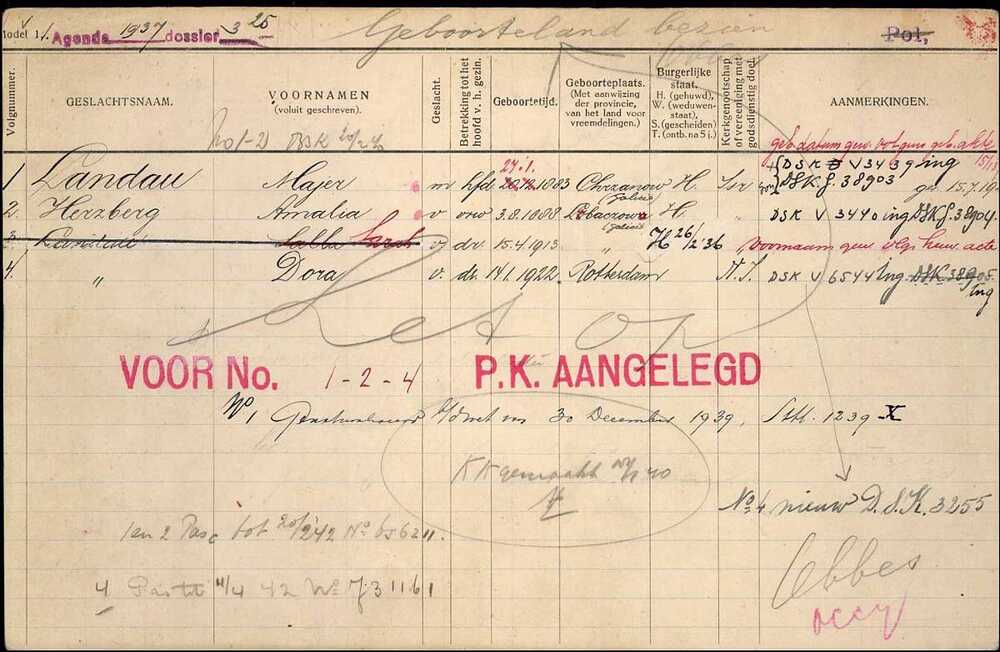 Model 1. Agenda 1937 dossier 3 25 Geboorteland bezien Pol.
Volgnummer. GESLACHTSNAAM. VOORNAMEN (voluit geschreven). Geslacht. Betrekking tot het hoofd v. h. gezin. Geboortetijd. Geboorteplaats. (Met aanwijzing der provincie, van het land voor vreemdelingen.) Burgerlijke staat. H. (gehuwd), W. (weduwen-staat), S. (gescheiden) T. (ontb. na 5 j.) Kerkgenootschap of vereeniging met godsdienstig doel. AANMERKINGEN.
geb. datum gew. volgens geb. akte
27.1.
1 Landau Majer m hfd 1883 Chrzanow H. Isr DSK V 3439 ing
DSK J. 38903
(Galicië)
2. Herzberg Amalia v vrw 3.8.1888 Lobaczowa H. " DSK V 3440 ing DSK J. 38904
(Galicië)
3. Landau Salla Sara v dr. 15.4.1913 " H 26/2 36 Voornaam gew. vlgs huw. acte
4. " Dora v. dr 14.1.1922. Rotterdam N.I. DSK V 6544 ing DSK 38905
ing
Let op
VOOR No. 1-2-4 P.K. AANGELEGD
No 1 30 December 1939, Stbl. 1239 X
KK gemaakt
No 4 nieuw D.S.K. 3255
1 en 2 Pas tot 20/2 42 No
4 Pas tot 11/4 42 No J 31161